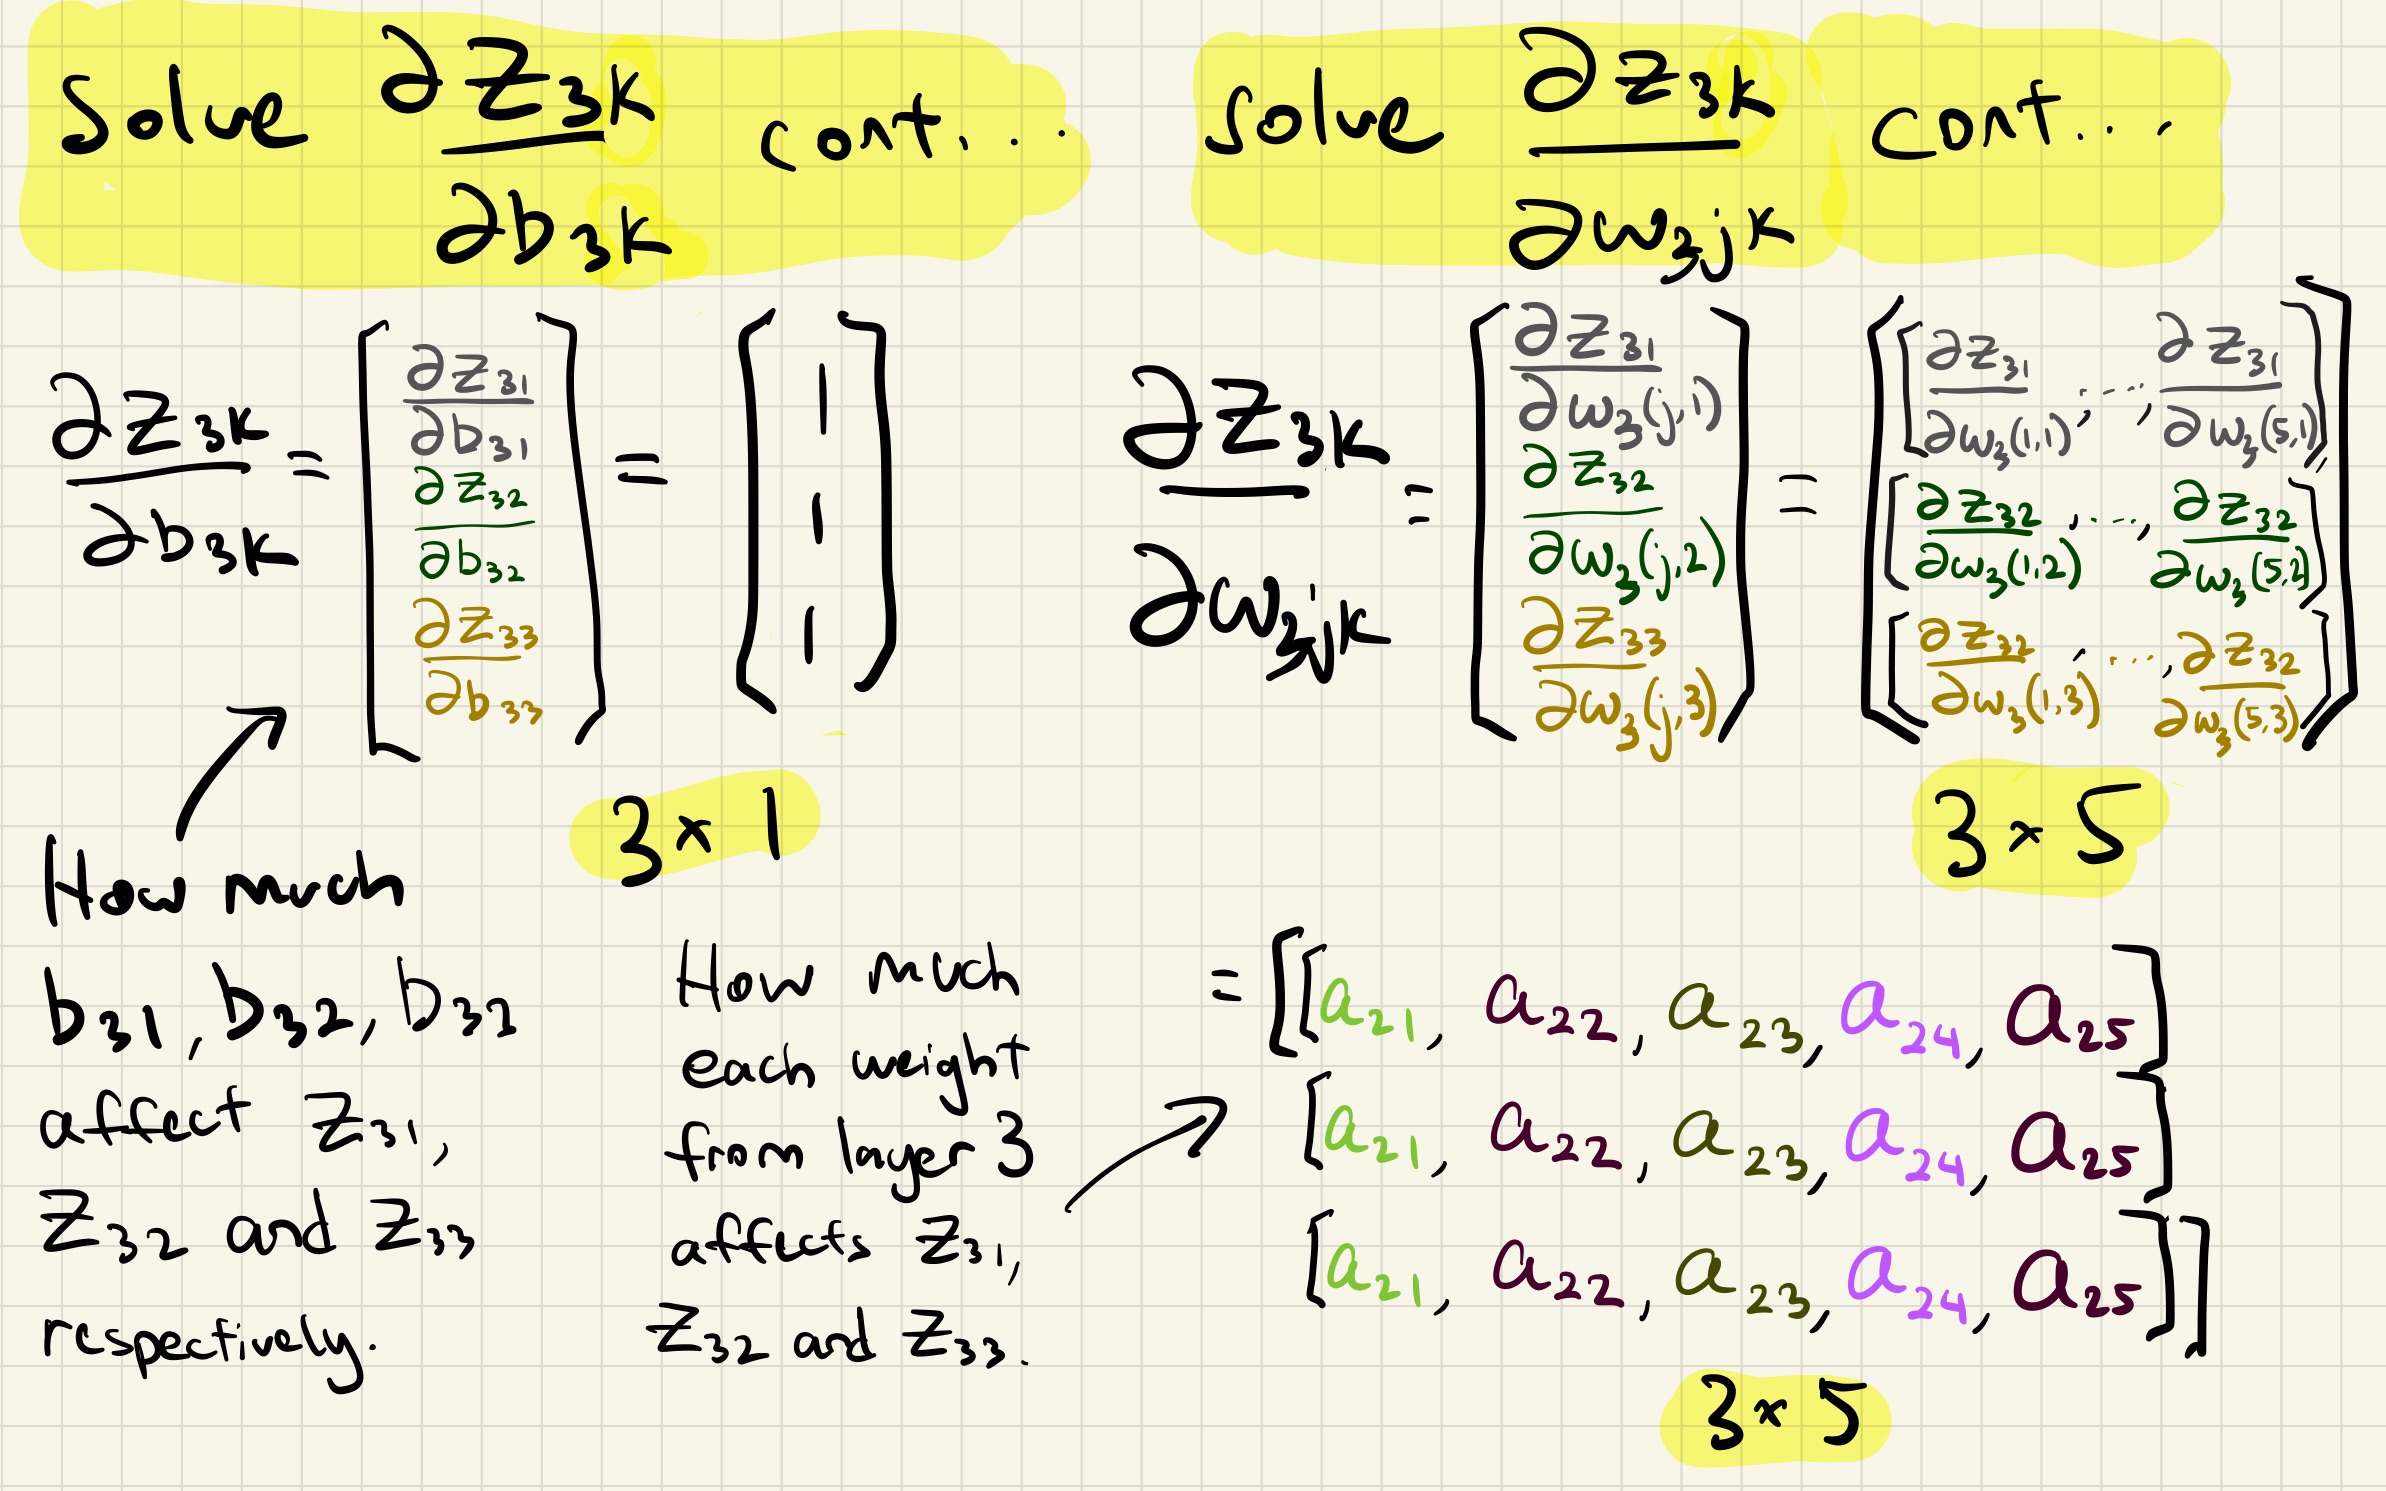 Solve ∂z₃ₖ/∂b₃ₖ cont...
∂z₃ₖ/∂b₃ₖ = [∂z₃₁/∂b₃₁
∂z₃₂/∂b₃₂
∂z₃₃/∂b₃₃] = [1
1
1]
3 × 1
How much
b₃₁, b₃₂, b₃₃
affect z₃₁,
z₃₂ and z₃₃
respectively.
Solve ∂z₃ₖ/∂w₃ⱼₖ cont...
∂z₃ₖ/∂w₃ⱼₖ = [∂z₃₁/∂w₃(j,1)
∂z₃₂/∂w₃(j,2)
∂z₃₃/∂w₃(j,3)] = [[∂z₃₁/∂w₃(1,1), ..., ∂z₃₁/∂w₃(5,1)],
[∂z₃₂/∂w₃(1,2), ..., ∂z₃₂/∂w₃(5,2)]
[∂z₃₂/∂w₃(1,3), ..., ∂z₃₂/∂w₃(5,3)]]
3 × 5
How much
each weight
from layer 3
affects z₃₁,
z₃₂ and z₃₃.
= [[a₂₁, a₂₂, a₂₃, a₂₄, a₂₅]
[a₂₁, a₂₂, a₂₃, a₂₄, a₂₅]
[a₂₁, a₂₂, a₂₃, a₂₄, a₂₅]]
3 × 5